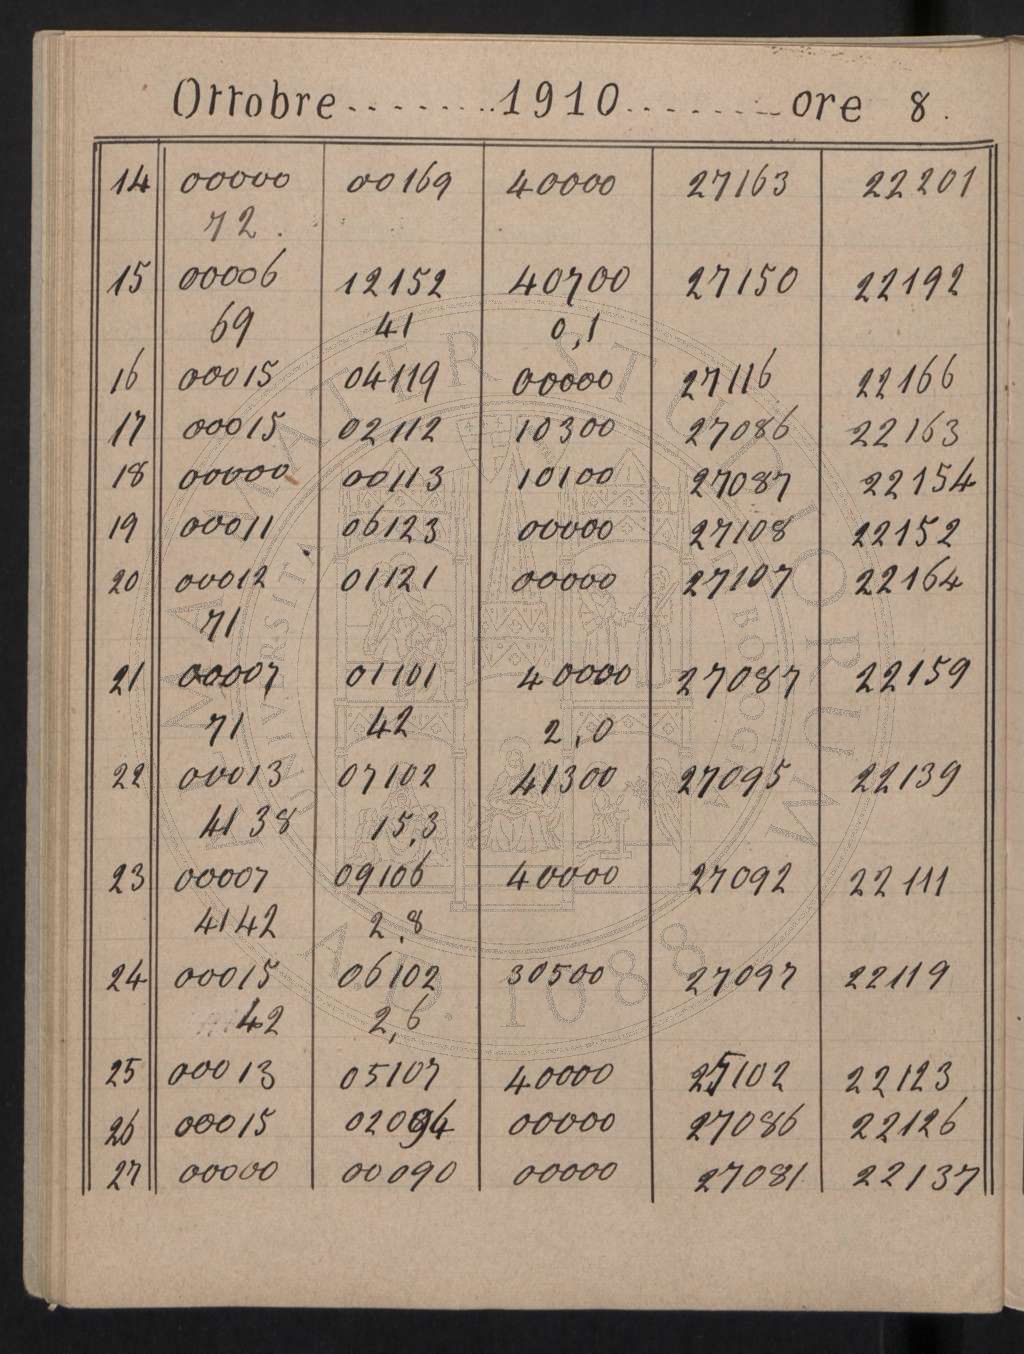 Ottobre........1910........ore 8.
14 00000 00169 40000 27163 22201
72.
15 00006 12152 40700 27150 22192
69 41 0,1
16 00015 04119 00000 27116 22166
17 00015 02112 10300 27086 22163
18 00000 00113 10100 27087 22154
19 00011 06123 00000 27108 22152
20 00012 01121 00000 27107 22164
71
21 00007 01101 40000 27087 22159
71 42 2,0
22 00013 07102 41300 27095 22139
4138 15,3
23 00007 09106 40000 27092 22111
4142 2,8
24 00015 06102 30500 27097 22119
42 2,6
25 00013 05107 40000 27102 22123
26 00015 02094 00000 27086 22126
27 00000 00090 00000 27081 22137
ALMA MATER STUDIORUM
A.D. 1088